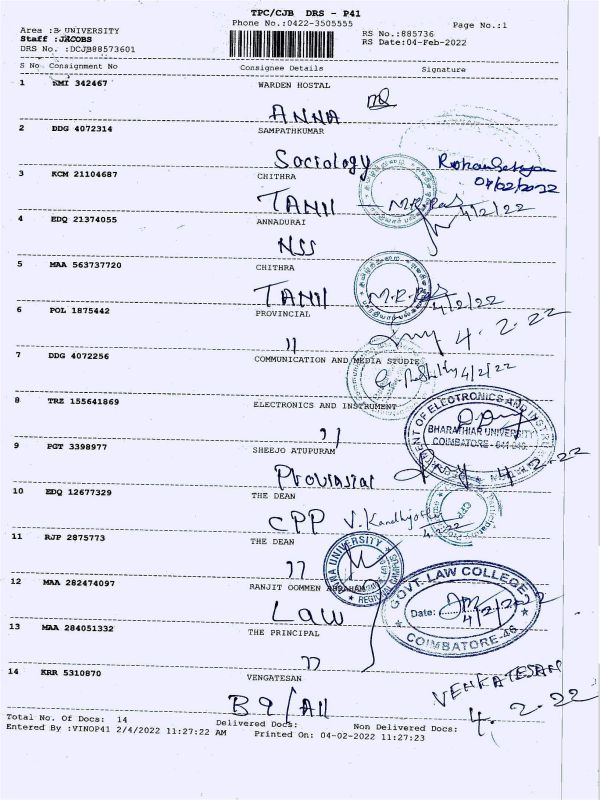 TPC/CJB DRS - P41
Phone No.:0422-3505555
Page No.:1
Area :B UNIVERSITY
Staff :JACOBS
DRS No. :DCJB88573601
RS No.:885736
RS Date:04-Feb-2022
S No Consignment No Consignee Details Signature
1 KMI 342467 WARDEN HOSTAL
ANNA
2 DDG 4072314 SAMPATHKUMAR
Sociology
04/02/2022
3 KCM 21104687 CHITHRA
TAMIL 4/2/22
4 EDQ 21374055 ANNADURAI
NSS
5 MAA 563737720 CHITHRA
TAMIL 4/2/22
6 POL 1875442 PROVINCIAL
" 4.2.22
7 DDG 4072256 COMMUNICATION AND MEDIA STUDIE
4/2/22
8 TRZ 155641869 ELECTRONICS AND INSTRUMENT
"
BHARATHIAR UNIVERSITY
COIMBATORE - 641 046.
9 PGT 3398977 SHEEJO ATUPURAM
4.2.22
10 EDQ 12677329 THE DEAN
CPP
4.2.22
CPP
11 RJP 2875773 THE DEAN
"
12 MAA 282474097 RANJIT OOMMEN ABRAHAM
LAW
GOVT. LAW COLLEGE
Date: 4/2/2022
COIMBATORE-46
13 MAA 284051332 THE PRINCIPAL
"
14 KRR 5310870 VENGATESAN
VENKATESAN
4.2.22
Total No. Of Docs: 14 Delivered Docs: Non Delivered Docs:
Entered By :VINOP41 2/4/2022 11:27:22 AM Printed On: 04-02-2022 11:27:23